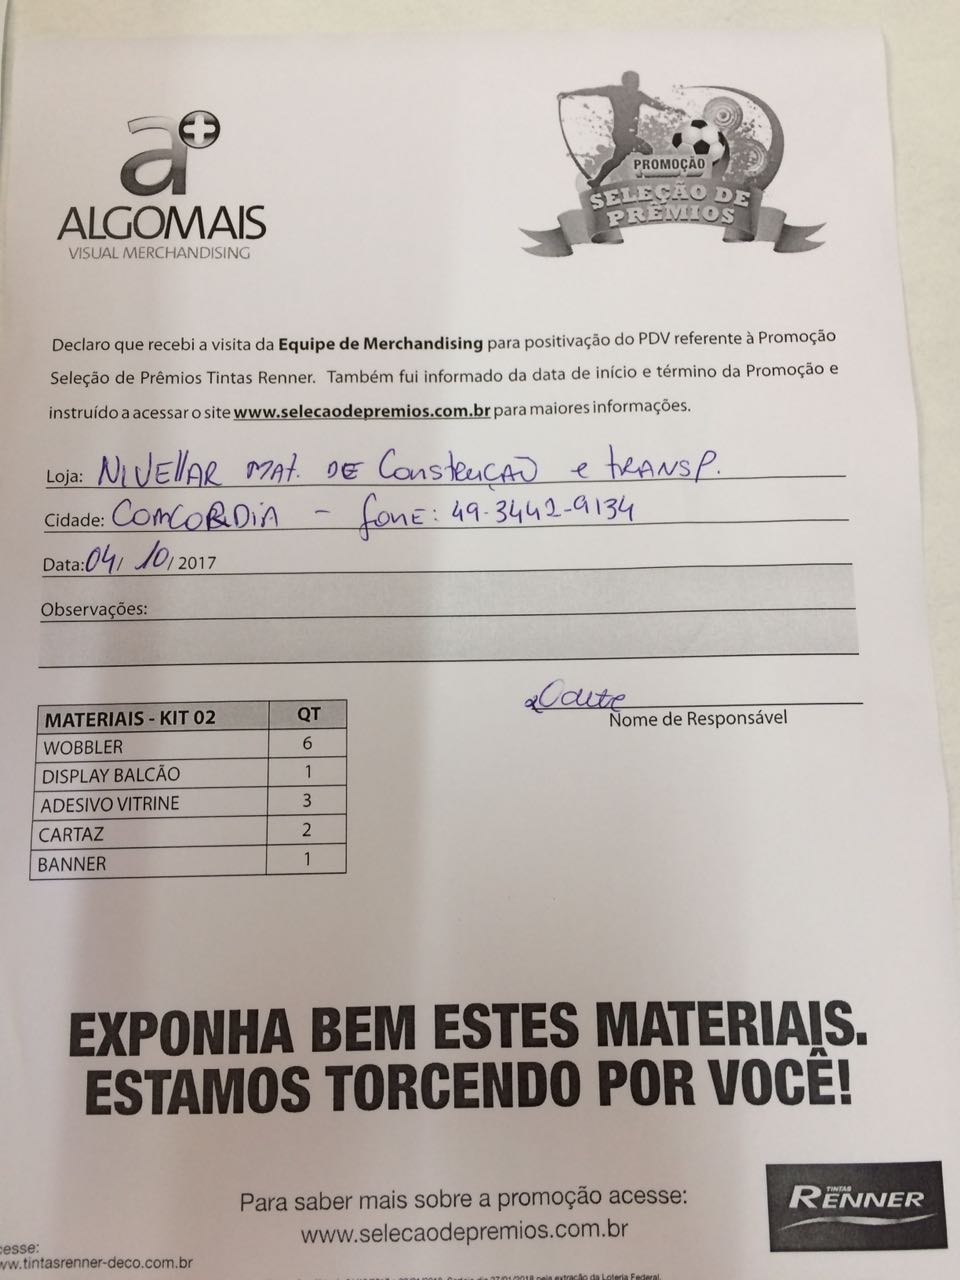 a+
ALGOMAIS
VISUAL MERCHANDISING
PROMOÇÃO
SELEÇÃO DE
PRÊMIOS
Declaro que recebi a visita da Equipe de Merchandising para positivação do PDV referente à Promoção
Seleção de Prêmios Tintas Renner. Também fui informado da data de início e término da Promoção e
instruído a acessar o site www.selecaodepremios.com.br para maiores informações.
Loja: NIVEllAR MAT. DE ConstruçÃO e tRANSP.
Cidade: CONCORDIA - fone: 49-3442-9134
Data: 04/ 10/ 2017
Observações:
Nome de Responsável
MATERIAIS - KIT 02 QT
WOBBLER 6
DISPLAY BALCÃO 1
ADESIVO VITRINE 3
CARTAZ 2
BANNER 1
EXPONHA BEM ESTES MATERIAIS.
ESTAMOS TORCENDO POR VOCÊ!
Para saber mais sobre a promoção acesse:
www.selecaodepremios.com.br
TINTAS
RENNER
cesse:
ww.tintasrenner-deco.com.br
27/01/2018 pela extração da Loteria Federal.